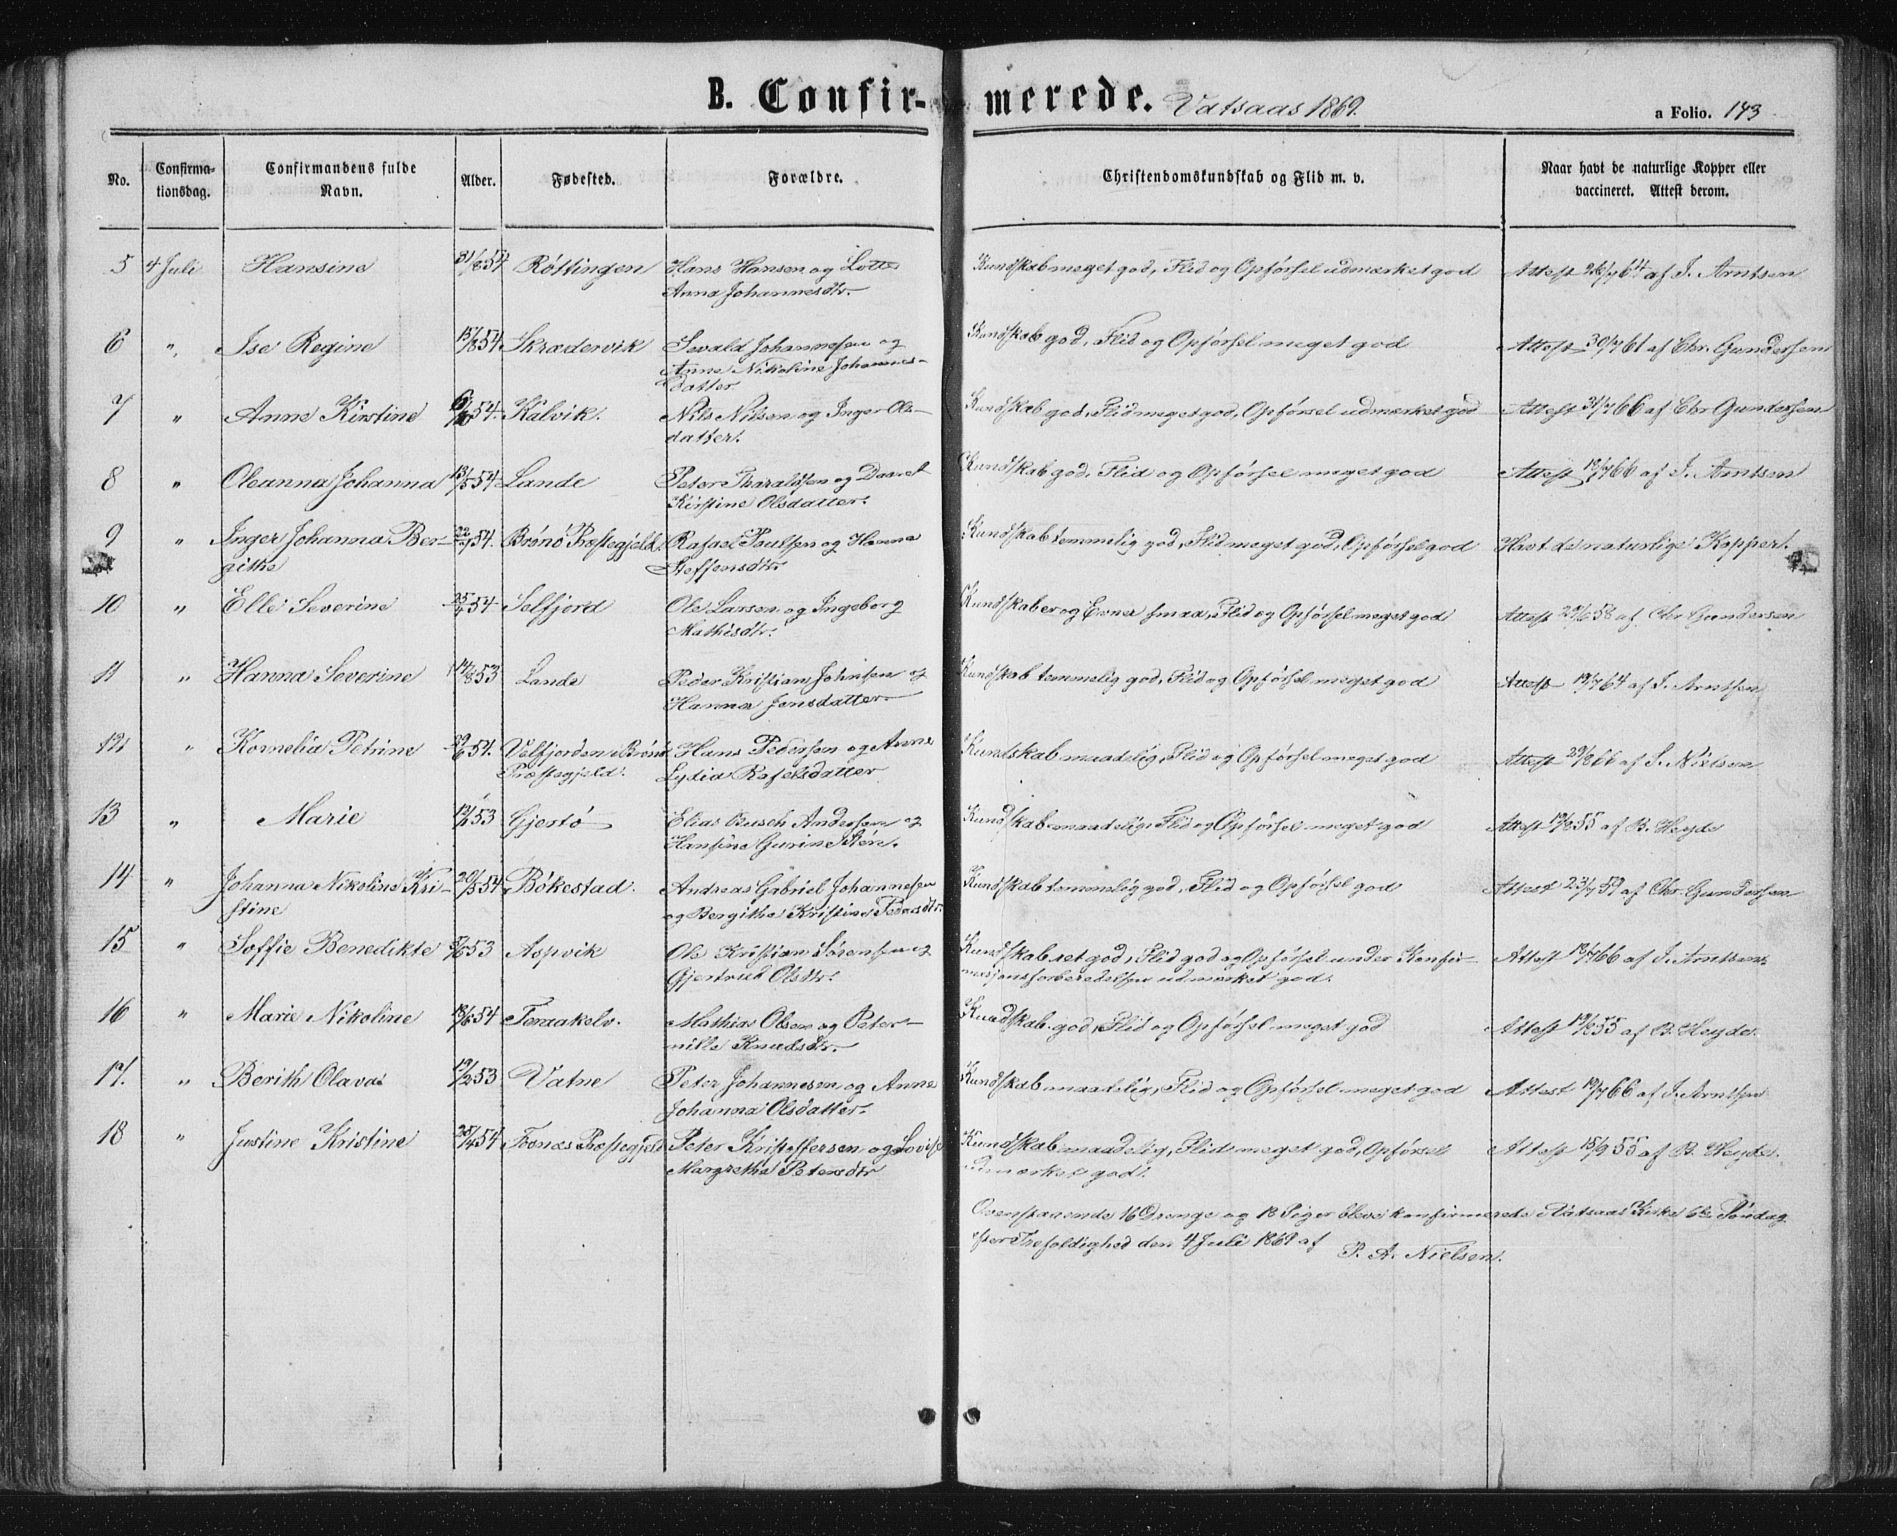 B. Confirmerede. Vatsaas 1869. a Folio. 143
No. Confirmationsdag. Confirmandens fulde Navn. Alder. Fødested. Forældre. Christendomskundskab og Flid m. v. Naar havt de naturlige Kopper eller vaccineret. Attest derom.
5 4 Juli Hansine 31/8 54 Røttingen Hans Hansen og Lotte Kundskab meget god, Flid og Opførsel udmærket god Attest af J. Arntsen
Anna Johannesdtr.
6 " Ise Regine 15/8 54 Skrædervik Sevald Johannesen og Kundskab god, Flid og Opførsel meget god Attest 30/7 61 af Chr. Gundersen
Anne Nikoline Johannes-
datter
7 " Anne Kirstine 54. Kalvik. Nils Nilsen og Inger Ols- Kundskab god, Flid meget god, Opførsel udmærket god Attest 31/7 66 af Chr Gundersen
datter.
8 " Oleanna Johanna 13/5 54 Lande Peter Tharaldsen og Daaret Kundskab god, Flid og Opførsel meget god Attest 19/7 66 af J. Arntsen
Kirstine Olsdatter.
9 " Inger Johanna Ber- 54. Brønø Præstegjeld. Rafael Paulsen og Hanna Kundskab temmelig god, Flid meget god, Opførsel god Havt de naturlige Kopper.
githe Steffensdtr.
10 " Elle Severine 54 Selfjord Ole Larsen og Ingeborg Kundskaber og Evner smaa, Flid og Opførsel meget god Attest 29/6 58 af Chr Gundersen
Mathisdtr.
11 " Hanna Severine 14/8 53 Lande Peder Kristian Johnsen og Kundskab temmelig god, Flid og Opførsel meget god Attest 19/7 64 af J. Arntsen
Hanna Jonsdatter
12 " Kornelia Petrine 29/6 54. Velfjorden i Brønø Hans Pedersen og Anne Kundskab maadelig, Flid og Opførsel meget god Attest 29/8 66 af S. Nielsen
Præstegjeld. Lydia Rafelsdatter
13 " Marie 53 Gjerstø Elias Busch Andersen og Kundskab maadelig, Flid og Opførsel meget god Attest 19/8 55 af B. Heyde
Hansine Gurine Stén.
14 " Johanna Nikoline Kri- 20/5 54 Bøkestad. Andreas Gabriel Johannesen Kundskab temmelig god, Flid og Opførsel god Attest 23/7 59 af Chr. Gundersen
stine og Bergithe Kristine Pedersdtr.
15 " Soffie Benedikte 53 Aspvik Ole Kristian Sørensen og Kundskab ret god, Flid god og Opførsel under Konfir- Attest 19/7 66 af J. Arntsen
Gjertrud Olsdtr. masjonsforberedelsen udmærket god.
16 " Marie Nikoline 18/6 54 Terraakelv. Mathias Olsen og Peter- Kundskab god, Flid og Opførsel meget god Attest 19/8 55 af B. Heyde.
nille Knudsdtr.
17. " Berith Olava 19/2 53 Vatne Peter Johannesen og Anne Kundskab maadelig, Flid og Opførsel meget god Attest 19/7 66 af J. Arntsen
Johanna Olsdatter.
18 " Justine Kristine 25/4 54 Trønæs Præstegjeld Peter Kristoffersen og Lovise Kundskab maadelig, Flid meget god, Opførsel Attest 15/9 55 af B. Heyde.
Margrethe Petersdtr udmærket god.
Ovenstaaende 16 Drenge og 18 Piger bleve konfirmerede i Vatsaas Kirke 6te Søndag
efter Trefoldighed den 4 Juli 1869 af P. A. Nielsen.